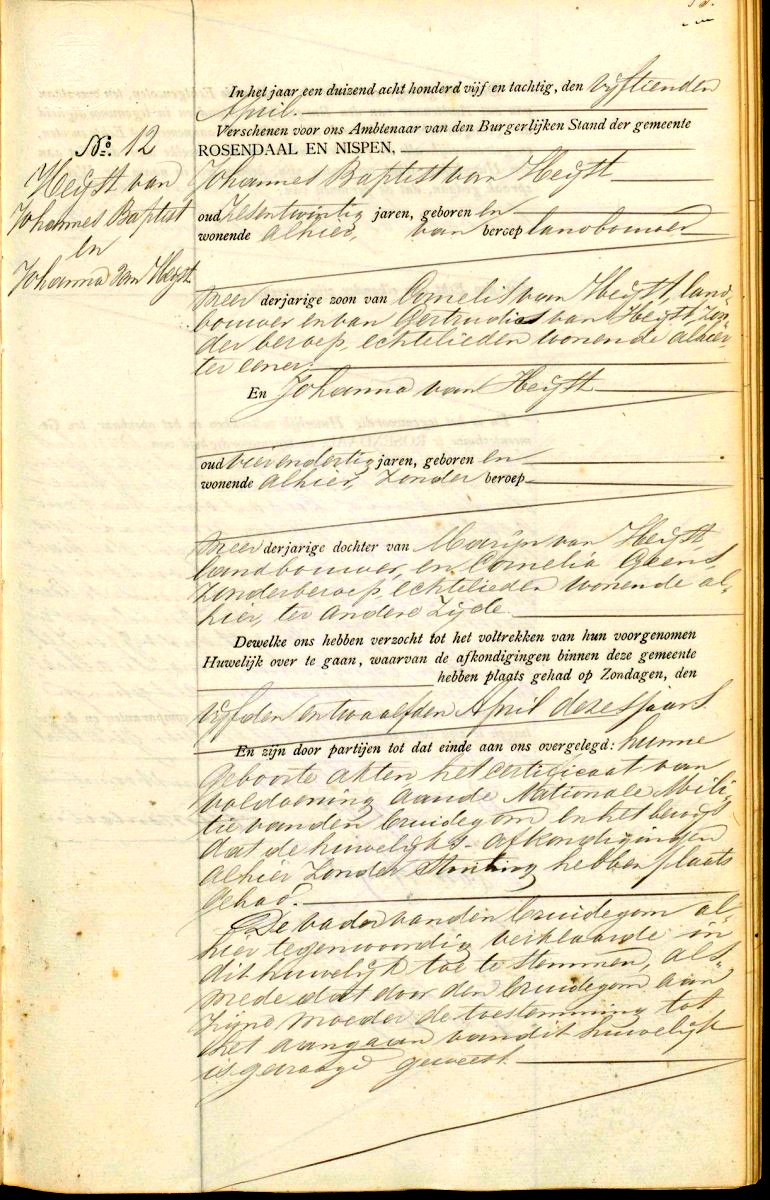 No. 12
Heijst van
Johannes Baptist
en
Johanna van Heijst
In het jaar een duizend acht honderd vijf en tachtig, den vijftienden
April.
Verschenen voor ons Ambtenaar van den Burgerlijken Stand der gemeente
ROSENDAAL EN NISPEN,
Johannes Baptist van Heijst
oud zesentwintig jaren, geboren en
wonende alhier, van beroep landbouwer
meer derjarige zoon van Cornelis van Heijst, land-
bouwer en van Gertrudis van Heijst zon-
der beroep, echtelieden wonende alhier
ter eener
En Johanna van Heijst
oud vierendertig jaren, geboren en
wonende alhier, zonder beroep
meer derjarige dochter van Marijn van Heijst,
landbouwer, en Cornelia Goens,
zonder beroep, echtelieden wonende al-
hier, ter andere zijde.
Dewelke ons hebben verzocht tot het voltrekken van hun voorgenomen
Huwelijk over te gaan, waarvan de afkondigingen binnen deze gemeente
hebben plaats gehad op Zondagen, den
vijfden en twaalfden April dezes jaars.
En zijn door partijen tot dat einde aan ons overgelegd: hunne
geboorte akten het certificaat van
voldoening aan de Nationale Mili-
tie van den bruidegom en het bewijs
dat de huwelijks-afkondigingen
alhier zonder stuiting hebben plaats
gehad.
De vader van den bruidegom al-
hier tegenwoordig verklaarde in
dit huwelijk toe te stemmen, als-
mede dat door den bruidegom aan
zijne moeder de toestemming tot
het aangaan van dit huwelijk
is gevraagd geweest.